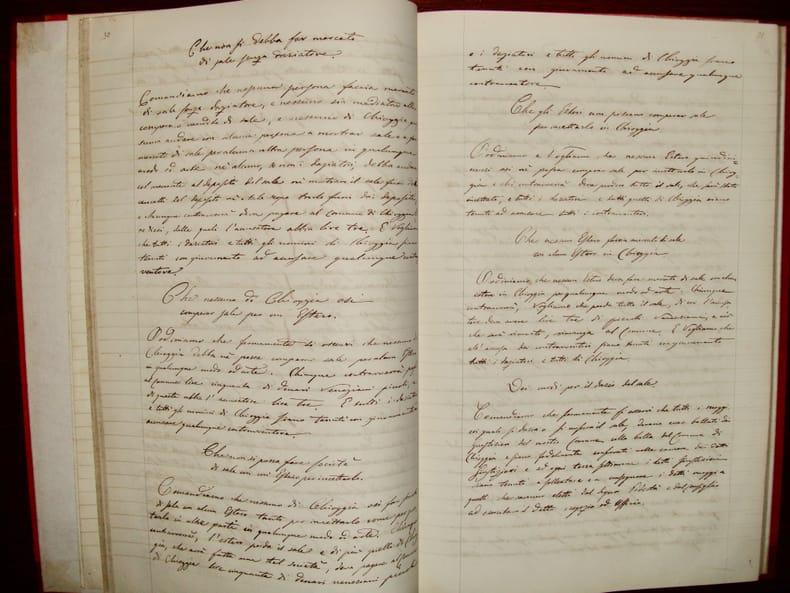 30
Che non si debba far mercato
di sale senza daziatore.
Comandiamo che nessuna persona faccia mercato
di sale senza daziatore, e nessuno sia mediatore alla
compera o vendita di sale, e nessuno di Chioggia
andare con alcuna persona a mostrar sale
di sale per alcuna altra persona in qualunque
modo od arte nè alcuno, se non i daziatori, debba andare
col mercante al deposito del sale
e chiunque contraverrà deva pagare al Comune di Chioggia
delle quali l'accusatore abbia lire tre. E Vogliamo
che tutti i daziatori e tutti gli uomini di Chioggia siano
tenuti con giuramento ad accusare qualunque
ventore.
Che nessuno di Chioggia osi
comprar sale per un Estero.
Ordiniamo che fermamente si osservi che nessuno
Chioggia debba nè possa comprar sale per alcun Estero
in qualunque modo od arte. Chiunque contraverrà
al comune lire cinquanta di denari Veneziani piccoli, e
di questo abbia l'accusatore lire tre. E tutti i daziatori
e tutti gli uomini di Chioggia siano tenuti con giuramento
accusare qualunque contraventore.
Che non si possa fare società
di sale con un Estero per metterlo.
Comandiamo che nessuno di Chioggia osi far
di sale con alcun Estero tanto per metterlo come per
tarlo in altre parti in qualunque modo od arte.
contraverrà, l'estero perda il sale e di più quello di
gia, che avrà fatta una tal società, deva pagare al
di Chioggia lire cinquanta di denari veneziani piccoli
31
o i daziatori e tutti gli uomini di Chioggia siano
tenuti con giuramento ad accusare qualunque
contraventore.
Che gli Esteri non possano comprar sale
per metterlo in Chioggia.
Ordiniamo e Vogliamo, che nessun Estero
osi nè possa comprar sale per metterlo in Chiog
gia e chi contraverrà deva perder tutto il sale, che sarà stato
e tutti i daziatori e tutti quelli di Chioggia siano
tenuti ad accusare tutti i contraventori.
Che nessun Estero faccia mercato di sale
con alcun Estero in Chioggia
Ordiniamo, che nessun Estero deva fare mercato di sale con alcun
estero in Chioggia per qualunque modo od arte. Chiunque
contraverrà, Vogliamo che perda tutto il sale, di cui l'accusa
tore deva avere lire tre di piccoli Veneziani, e ciò
che sarà rimasto, rimanga al Comune. E Vogliamo che
ad accusar da contraventori siano tenuti con giuramento
tutti i daziatori e tutti di Chioggia
Dei modi per il dazio del sale.
Comandiamo che fermamente si osservi che tutti i moggi
coi quali si dà o si misura il sale, devano esser bollati dai
giustizieri del nostro Comune colla bolla del Comune di
Chioggia e siano fedelmente
Giustizieri e ad ogni terza settimana i detti Giustizieri
siano tenuti i detti moggi a
quelli che saranno eletti dal Signor Podestà e dal consiglio
ad esercitare il detto negozio od Officio.